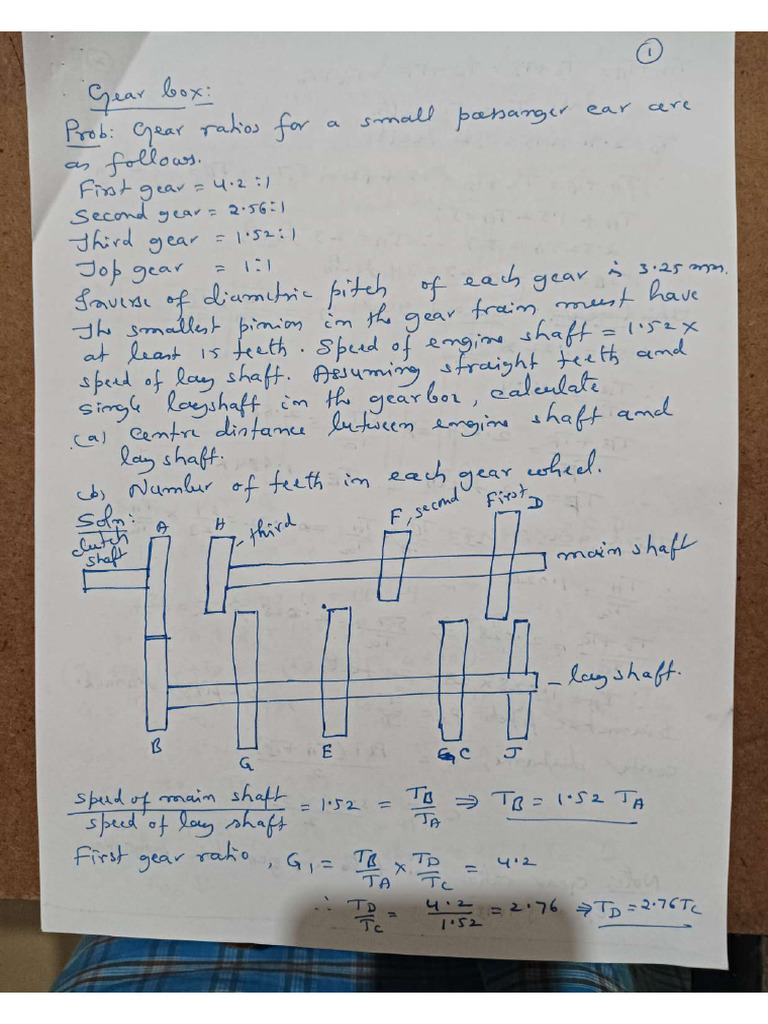 1
Gear box:
Prob: Gear ratios for a small passanger car are
as follows.
First gear = 4.2:1
Second gear = 2.56:1
Third gear = 1.52:1
Top gear = 1:1
Inverse of diametric pitch of each gear is 3.25 mm.
The smallest pinion in the gear train must have
at least 15 teeth. Speed of engine shaft = 1.52 x
speed of lay shaft. Assuming straight teeth and
single layshaft in the gearbox, calculate
(a) Centre distance between engine shaft and
lay shaft.
(b) Number of teeth in each gear wheel.
Soln:
clutch
shaft
A
H
- third
F, second
First
D
main shaft
- lay shaft.
B
G
E
C
J
speed of main shaft / speed of lay shaft = 1.52 = TB/TA ⇒ TB = 1.52 TA
First gear ratio, G1 = TB/TA × TD/TC = 4.2
∴ TD/TC = 4.2/1.52 = 2.76 ⇒ TD = 2.76 TC